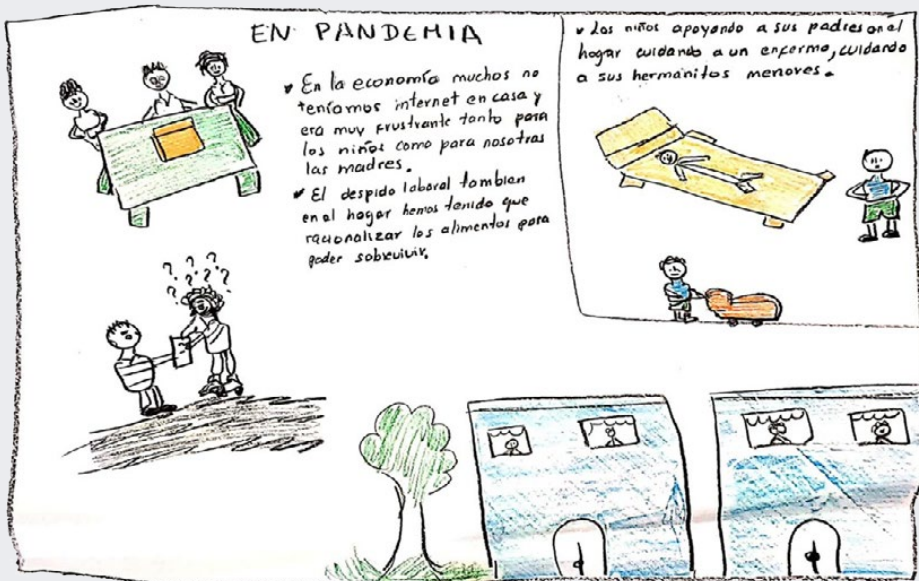 EN PANDEMIA
En la economía muchos no
teníamos internet en casa y
era muy frustrante tanto para
los niños como para nosotras
las madres.
El despido laboral tambien
en el hogar hemos tenido que
racionalizar los alimentos para
poder sobrevivir.
Los niños apoyando a sus padres en el
hogar cuidando a un enfermo, cuidando
a sus hermanitos menores.
? ? ? ? ? ? ?